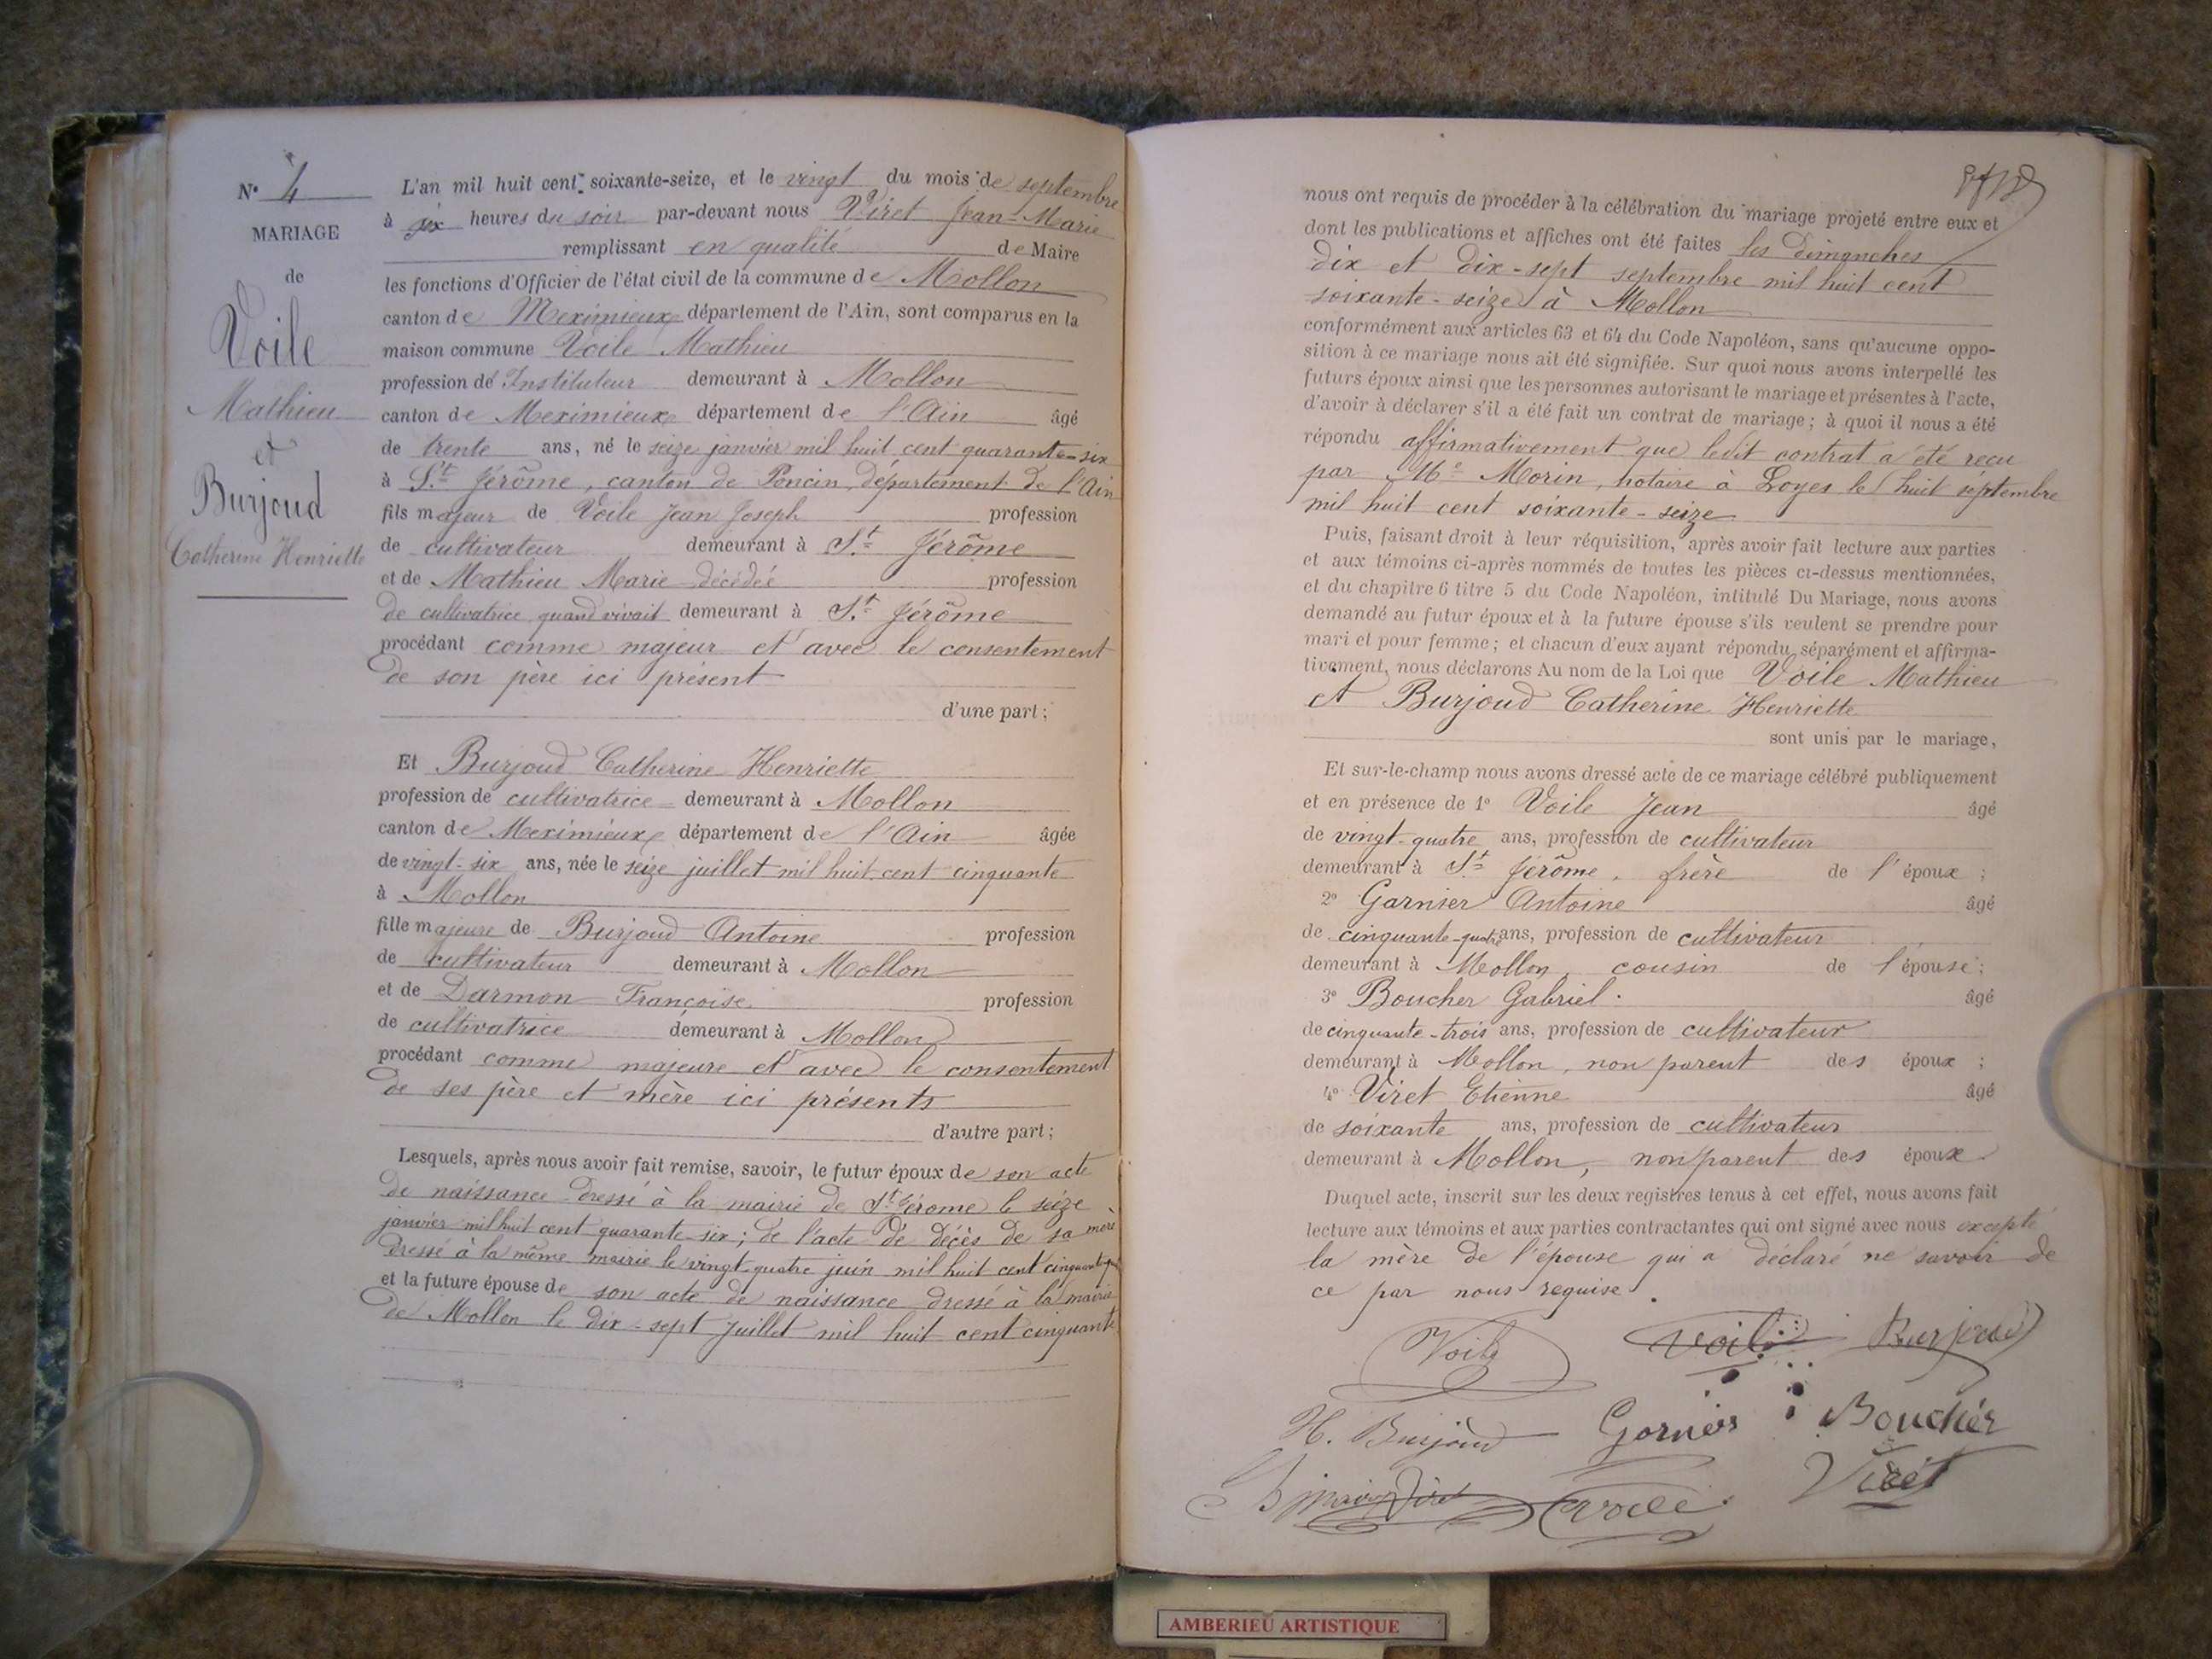 N° 4
MARIAGE
de
Voile
Mathieu
et
Burjoud
Catherine Henriette
L'an mil huit cent soixante-seize, et le vingt du mois de septembre
à six heures du soir par-devant nous Viret Jean-Marie
remplissant en qualité de Maire
les fonctions d'Officier de l'état civil de la commune de Mollon
canton de Meximieux département de l'Ain, sont comparus en la
maison commune Voile Mathieu
profession de Instituteur demeurant à Mollon
canton de Meximieux département de l'Ain âgé
de trente ans, né le seize janvier mil huit cent quarante-six
à St Jérôme, canton de Poncin, département de l'Ain
fils majeur de Voile Jean Joseph profession
de cultivateur demeurant à St Jérôme
et de Mathieu Marie décédée profession
de cultivatrice quand vivait demeurant à St Jérôme
procédant comme majeur et avec le consentement
de son père ici présent
d'une part;
Et Burjoud Catherine Henriette
profession de cultivatrice demeurant à Mollon
canton de Meximieux département de l'Ain âgée
de vingt-six ans, née le seize juillet mil huit cent cinquante
à Mollon
fille majeure de Burjoud Antoine profession
de cultivateur demeurant à Mollon
et de Darmon Françoise profession
de cultivatrice demeurant à Mollon
procédant comme majeure et avec le consentement
de ses père et mère ici présents
d'autre part;
Lesquels, après nous avoir fait remise, savoir, le futur époux de son acte
de naissance dressé à la mairie de St Jérome le seize
janvier mil huit cent quarante-six; de l'acte de décès de sa mère
dressé à la même mairie le vingt-quatre juin mil huit cent
et la future épouse de son acte de naissance dressé à la mairie
de Mollon le dix-sept juillet mil huit cent cinquante
nous ont requis de procéder à la célébration du mariage projeté entre eux et
dont les publications et affiches ont été faites les Dimanches
dix et dix-sept septembre mil huit cent
soixante-seize à Mollon
conformément aux articles 63 et 64 du Code Napoléon, sans qu'aucune oppo-
sition à ce mariage nous ait été signifiée. Sur quoi nous avons interpellé les
futurs époux ainsi que les personnes autorisant le mariage et présentes à l'acte,
d'avoir à déclarer s'il a été fait un contrat de mariage; à quoi il nous a été
répondu affirmativement que ledit contrat a été reçu
par Me Morin, notaire à Loyes le huit septembre
mil huit cent soixante-seize
Puis, faisant droit à leur réquisition, après avoir fait lecture aux parties
et aux témoins ci-après nommés de toutes les pièces ci-dessus mentionnées,
et du chapitre 6 titre 5 du Code Napoléon, intitulé Du Mariage, nous avons
demandé au futur époux et à la future épouse s'ils veulent se prendre pour
mari et pour femme; et chacun d'eux ayant répondu séparément et affirma-
tivement, nous déclarons Au nom de la Loi que Voile Mathieu
et Burjoud Catherine Henriette
sont unis par le mariage,
Et sur-le-champ nous avons dressé acte de ce mariage célébré publiquement
et en présence de 1° Voile Jean âgé
de vingt-quatre ans, profession de cultivateur
demeurant à St Jérôme, frère de l'époux;
2° Garnier Antoine âgé
de cinquante-quatre ans, profession de cultivateur
demeurant à Mollon, cousin de l'épouse;
3° Boucher Gabriel. âgé
de cinquante-trois ans, profession de cultivateur
demeurant à Mollon, non parent des époux;
4° Viret Etienne âgé
de soixante ans, profession de cultivateur
demeurant à Mollon, non parent des époux.
Duquel acte, inscrit sur les deux registres tenus à cet effet, nous avons fait
lecture aux témoins et aux parties contractantes qui ont signé avec nous excepté
la mère de l'épouse qui a déclaré ne savoir de
ce par nous requise.
Voile Voile Burjoud
H. Burjoud Garnier Boucher
Voile Viret
AMBERIEU ARTISTIQUE